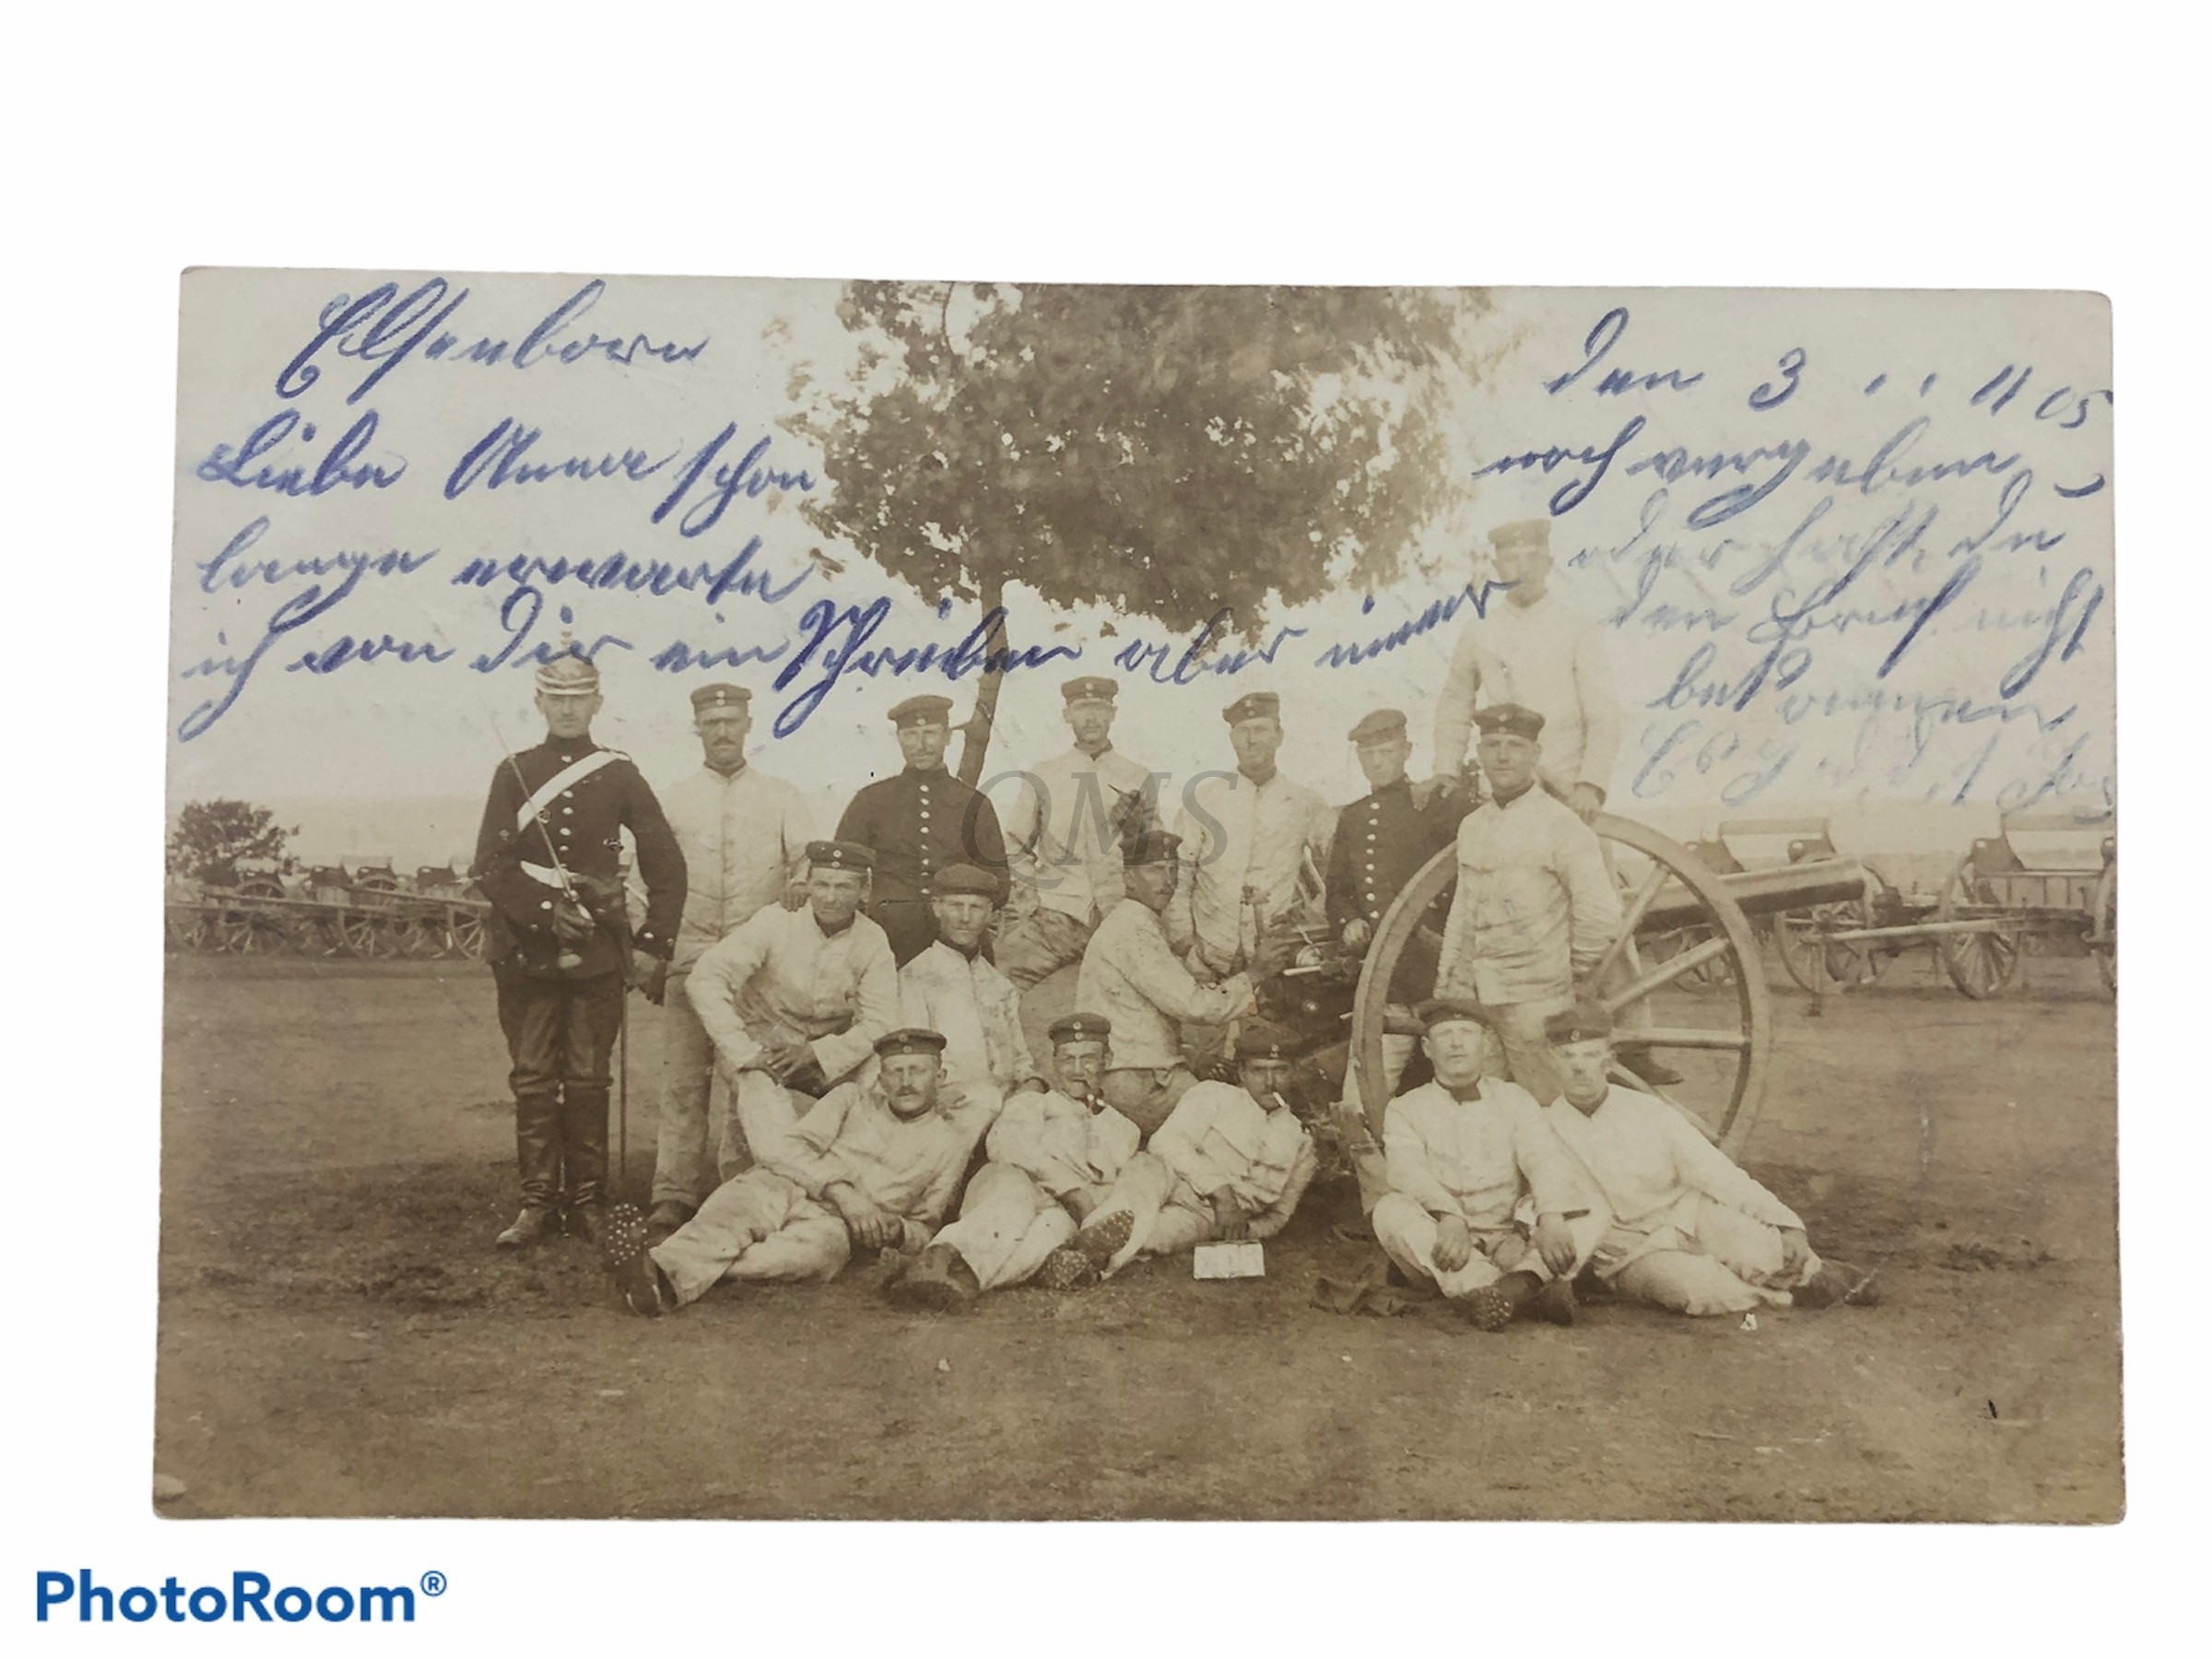 Elsenborn
den 3 . . 11 05
Liebe Anna schon
lange erwarte
ich von dir ein Schreiben aber imer
noch vergebens
oder hast du
den Brief nicht
bekommen
QMS
PhotoRoom®